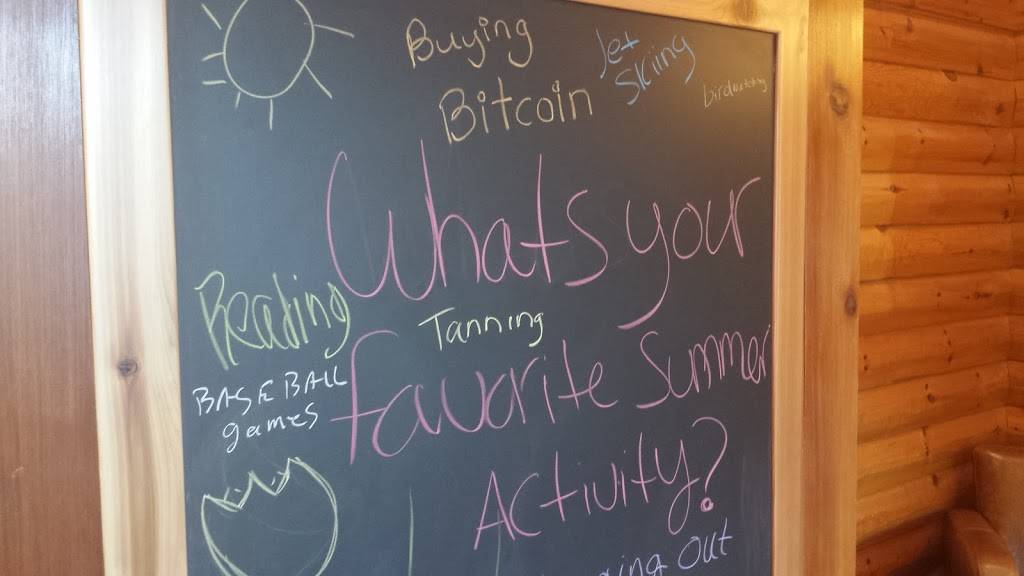 Buying
Bitcoin
Jet
Skiing
birdwatching
Whats your
Reading
Tanning
favorite Summer
BASEBALL
games
Activity?
out